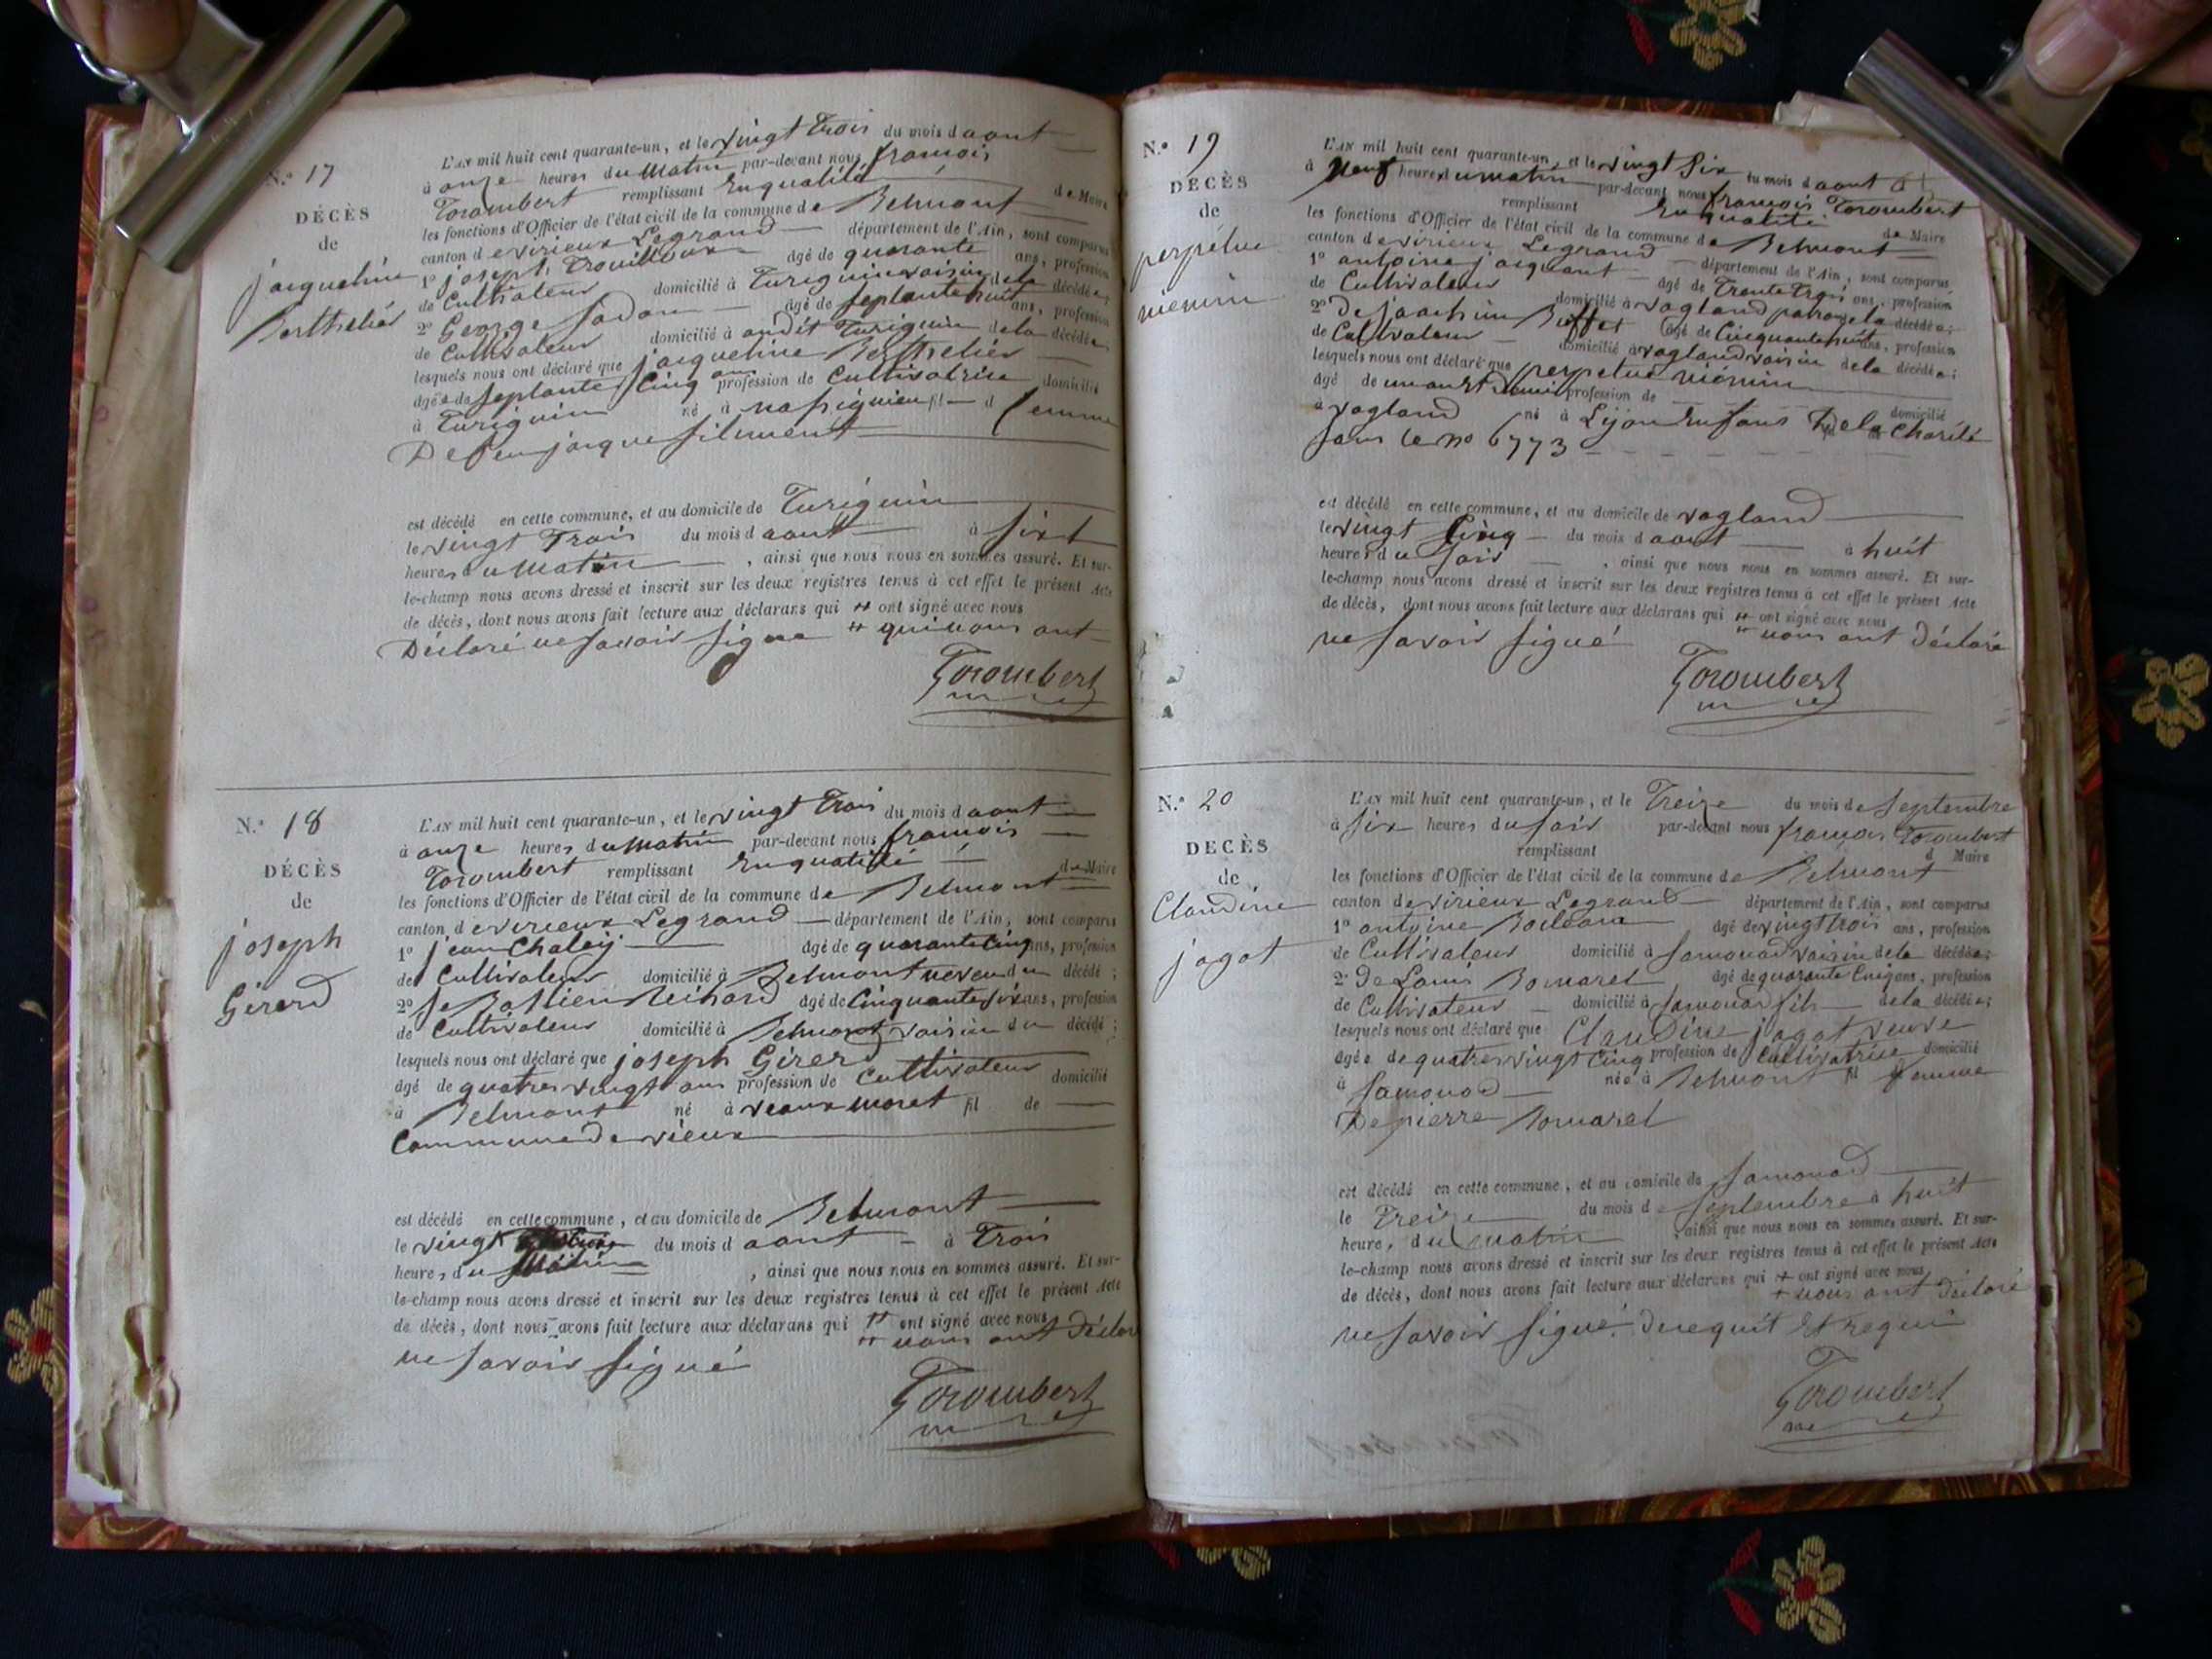 N.° 17
DÉCÈS
de
jacqueline
Berthelier
L'AN mil huit cent quarante-un, et le vingt Trois du mois d aout
à onze heures du Matin par-devant nous françois
Torombert remplissant En qualité de Maire
les fonctions d'Officier de l'état civil de la commune de Belmont
canton de virieux Legrand département de l'Ain, sont comparus
1° joseph Trouilloux âgé de quarante ans, profession
de Cultivateur domicilié à Turignin voisin de la décédée;
2° George sadon âgé de septante huit ans, profession
de Cultivateur domicilié à audit Turignin de la décédée,
lesquels nous ont déclaré que jacqueline Berthelier
âgée de septante Cinq ans profession de Cultivatrice domicilié
à Turignin né à fil d femme
De feu jaque
est décédé en cette commune, et au domicile de Turignin
le vingt Trois du mois d aout à sixt
heures du Matin, ainsi que nous nous en sommes assuré. Et sur-
le-champ nous avons dressé et inscrit sur les deux registres tenus à cet effet le présent Acte
de décès, dont nous avons fait lecture aux déclarans qui # ont signé avec nous
Déclaré ne savoir signe # qui nous ont
Torombert
N.° 18
DÉCÈS
de
joseph
Girerd
L'AN mil huit cent quarante-un, et le vingt Trois du mois d aout
à onze heures du Matin par-devant nous françois
Torombert remplissant En qualité de Maire
les fonctions d'Officier de l'état civil de la commune de Belmont
canton de virieux Legrand département de l'Ain, sont comparus
1° jean Chaley âgé de quarante Cinq ans, profession
de Cultivateur domicilié à Belmont neveu du décédé;
2° seBastien âgé de Cinquante six ans, profession
de Cultivateur domicilié à Belmont voisin du décédé;
lesquels nous ont déclaré que joseph Girerd
âgé de quatre vingt ans profession de Cultivateur domicilié
à Belmont né à veaux moret fil de
Commune de vieux
est décédé en cette commune, et au domicile de Belmont
le vingt du mois d aout à Trois
heures du, ainsi que nous nous en sommes assuré. Et sur-
le-champ nous avons dressé et inscrit sur les deux registres tenus à cet effet le présent Acte
de décès, dont nous avons fait lecture aux déclarans qui # ont signé avec nous
# nous ont Déclaré
ne savoir signé
Torombert
N.° 19
DÉCÈS
de
perpétue
niemin
L'AN mil huit cent quarante-un, et le vingt six du mois d aout
à Neuf heures du matin par-devant nous françois Torombert
remplissant En qualité de Maire
les fonctions d'Officier de l'état civil de la commune de Belmont
canton de virieux Legrand département de l'Ain, sont comparus
1° antoine jacquant âgé de Trente Trois ans, profession
de Cultivateur domicilié à vogland de la décédée;
2° De joachim Buffet âgé de Cinquante huit ans, profession
de Cultivateur domicilié à vogland voisin de la décédée;
lesquels nous ont déclaré que perpetue niémin
âgé de un an Et Demi profession de domicilié
à vogland né à Lijon Enfans De la Charité
sous le no 6773
est décédé en cette commune, et au domicile de vogland
le vingt Cinq du mois d aout à huit
heures du soir, ainsi que nous nous en sommes assuré. Et sur-
le-champ nous avons dressé et inscrit sur les deux registres tenus à cet effet le présent Acte
de décès, dont nous avons fait lecture aux déclarans qui # ont signé avec nous
# nous ont Déclaré
ne savoir signé
Torombert
N.° 20
DÉCÈS
de
Claudine
jagot
L'AN mil huit cent quarante-un, et le Treize du mois de septembre
à six heures du soir par-devant nous françois Torombert
remplissant d Maire
les fonctions d'Officier de l'état civil de la commune de Belmont
canton de virieux Legrand département de l'Ain, sont comparus
1° antoine âgé de vingt trois ans, profession
de Cultivateur domicilié à samonod voisin de la décédée;
2° De Louis Bomarel âgé de quarante Cinq ans, profession
de Cultivateur domicilié à samonod fils de la décédée;
lesquels nous ont déclaré que Claudine jagot veuve
âgée de quatre vingt Cinq profession de Cultivatrice domicilié
à samonod née à Belmont fil femme
De pierre Bomarel
est décédé en cette commune, et au domicile de samonod
le Treize du mois de septembre à huit
heures du matin, ainsi que nous nous en sommes assuré. Et sur-
le-champ nous avons dressé et inscrit sur les deux registres tenus à cet effet le présent Acte
de décès, dont nous avons fait lecture aux déclarans qui # ont signé avec nous
# nous ont Déclaré
ne savoir signé De requit Et requi
Torombert